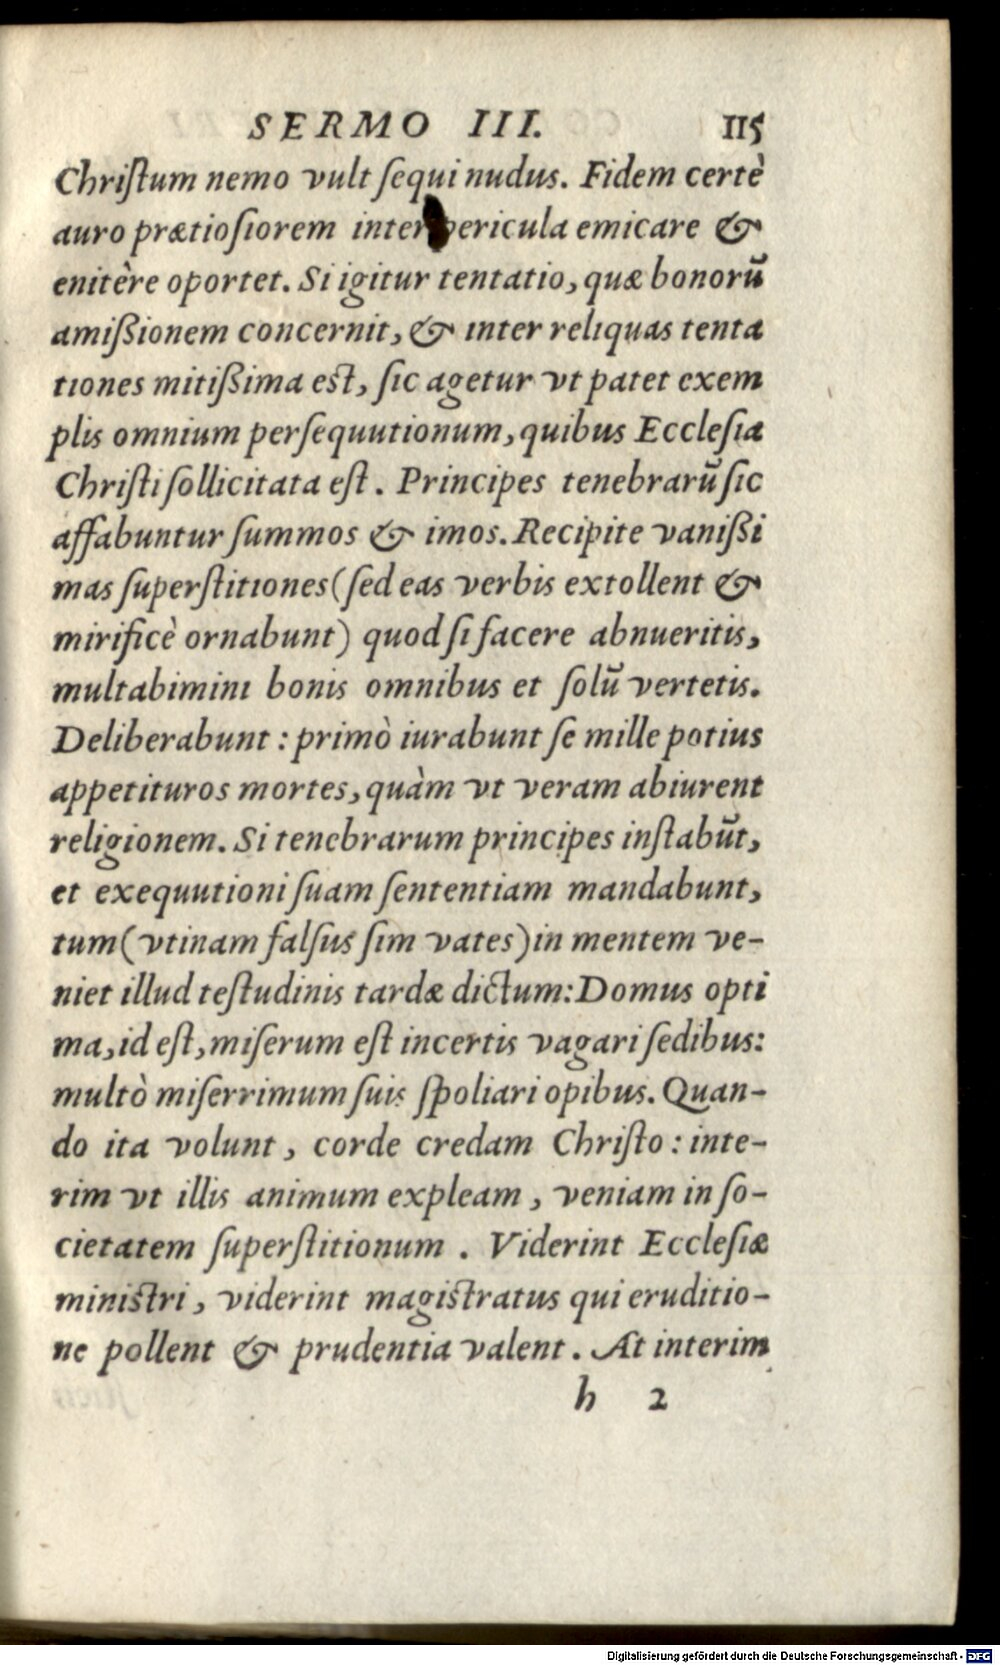 SERMO III. 115
Chriſtum nemo vult ſequi nudus. Fidem certè
auro prætioſiorem inter pericula emicare &
enitère oportet. Si igitur tentatio, quæ bonorū
amißionem concernit, & inter reliquas tenta
tiones mitißima est, ſic agetur vt patet exem
plis omnium perſequutionum, quibus Eccleſia
Chriſti ſollicitata eſt. Principes tenebrarū ſic
affabuntur ſummos & imos. Recipite vanißi
mas ſuperſtitiones (ſed eas verbis extollent &
mirificè ornabunt) quod ſi facere abnueritis,
multabimini bonis omnibus et ſolū vertetis.
Deliberabunt : primò iurabunt ſe mille potius
appetituros mortes, quàm vt veram abiurent
religionem. Si tenebrarum principes inſtabūt,
et exequutioni ſuam ſententiam mandabunt,
tum (vtinam falſus ſim vates) in mentem ve-
niet illud teſtudinis tardæ dictum: Domus opti
ma, id eſt, miſerum eſt incertis vagari ſedibus:
multò miſerrimum ſuis ſpoliari opibus. Quan-
do ita volunt, corde credam Chriſto : inte-
rim vt illis animum expleam, veniam in ſo-
cietatem ſuperſtitionum. Viderint Eccleſiæ
ministri, viderint magistratus qui eruditio-
ne pollent & prudentia valent. At interim
h 2
Digitalisierung gefördert durch die Deutsche Forschungsgemeinschaft - DFG